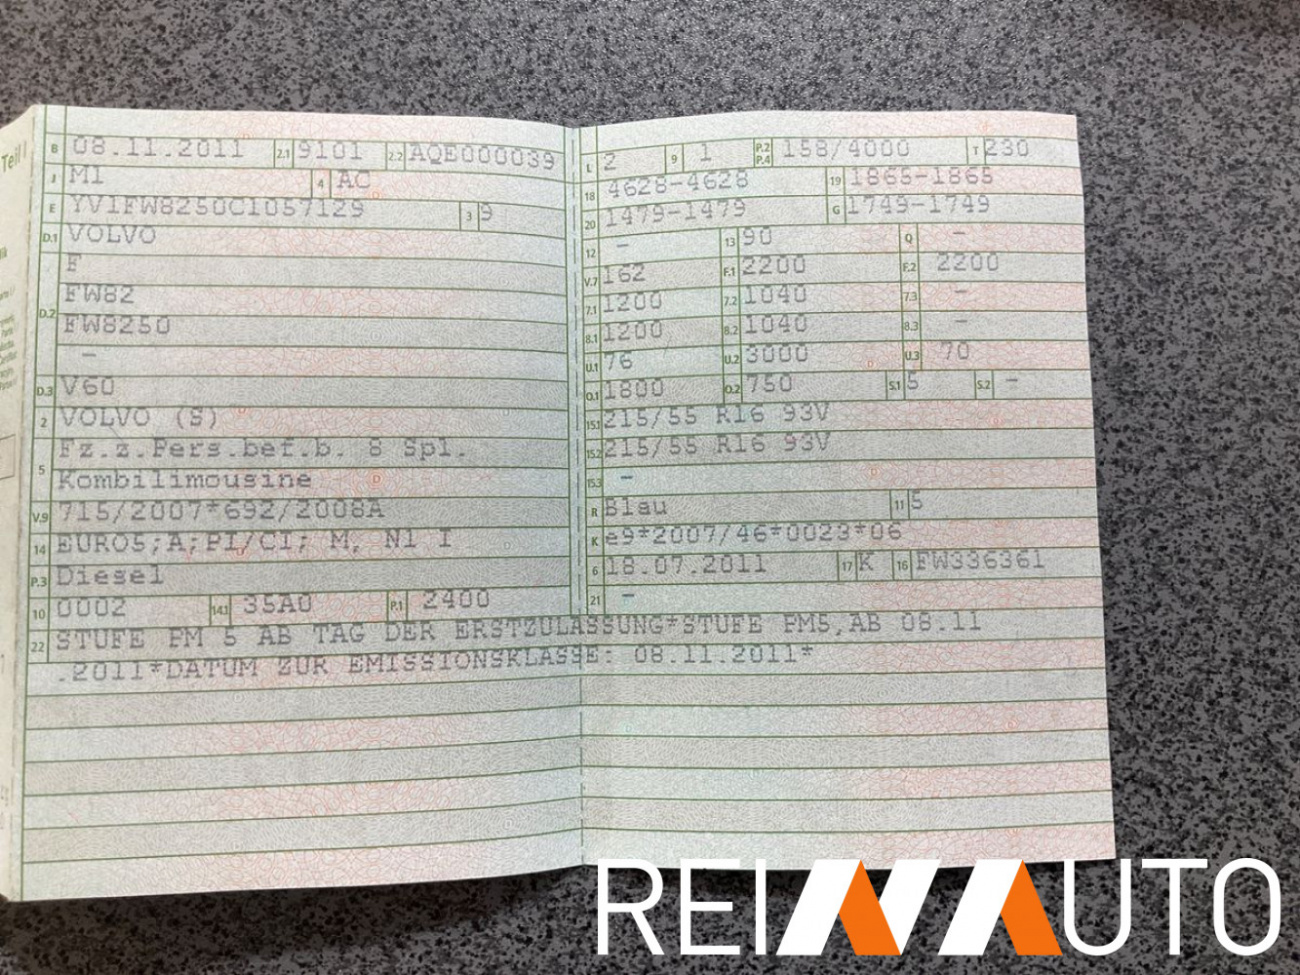 Teil I
B 08.11.2011 2.1 9101 2.2 AQE000039
J M1 4 AC
E YV1FW8250C1057129 3 9
D.1 VOLVO
F
D.2 FW82
FW8250
–
D.3 V60
2 VOLVO (S)
5 Fz.z.Pers.bef.b. 8 Spl.
Kombilimousine
V.9 715/2007*692/2008A
14 EURO5;A;PI/CI; M, N1 I
P.3 Diesel
10 0002 14.1 35A0 P.1 2400
L 2 9 1 P.2 P.4 158/4000 T 230
18 4628-4628 19 1865-1865
20 1479-1479 G 1749-1749
12 – 13 90 Q –
V.7 162 F.1 2200 F.2 2200
7.1 1200 7.2 1040 7.3 –
8.1 1200 8.2 1040 8.3 –
U.1 76 U.2 3000 U.3 70
O.1 1800 O.2 750 S.1 5 S.2 –
15.1 215/55 R16 93V
15.2 215/55 R16 93V
15.3 –
R Blau 11 5
K e9*2007/46*0023*06
6 18.07.2011 17 K 16 FW336361
21 –
22 STUFE PM 5 AB TAG DER ERSTZULASSUNG*STUFE PM5,AB 08.11
.2011*DATUM ZUR EMISSIONSKLASSE: 08.11.2011*
REINAUTO